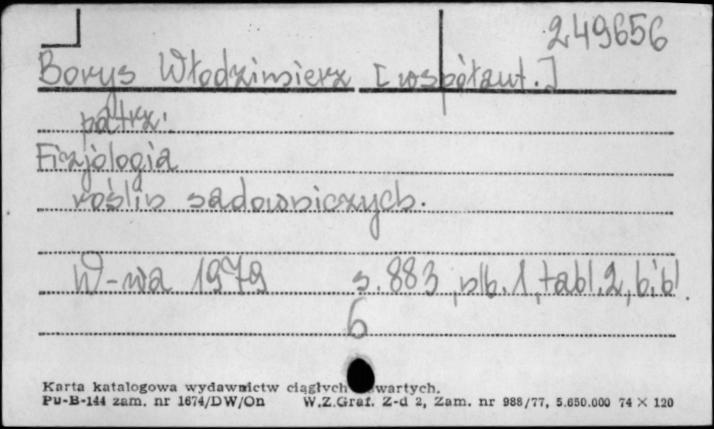 249656
Borys Włodzimierz [współaut.]
patrz:
Fizjologia
roślin sadowniczych.
W-wa 1979 s. 883, nlb. 1, tabl. 2, bibl.
6
Karta katalogowa wydawnictw ciągłych wartych.
Pu-B-144 zam. nr 1674/DW/On W.Z.Graf. Z-d 2, Zam. nr 988/77, 5.650.000 74 × 120